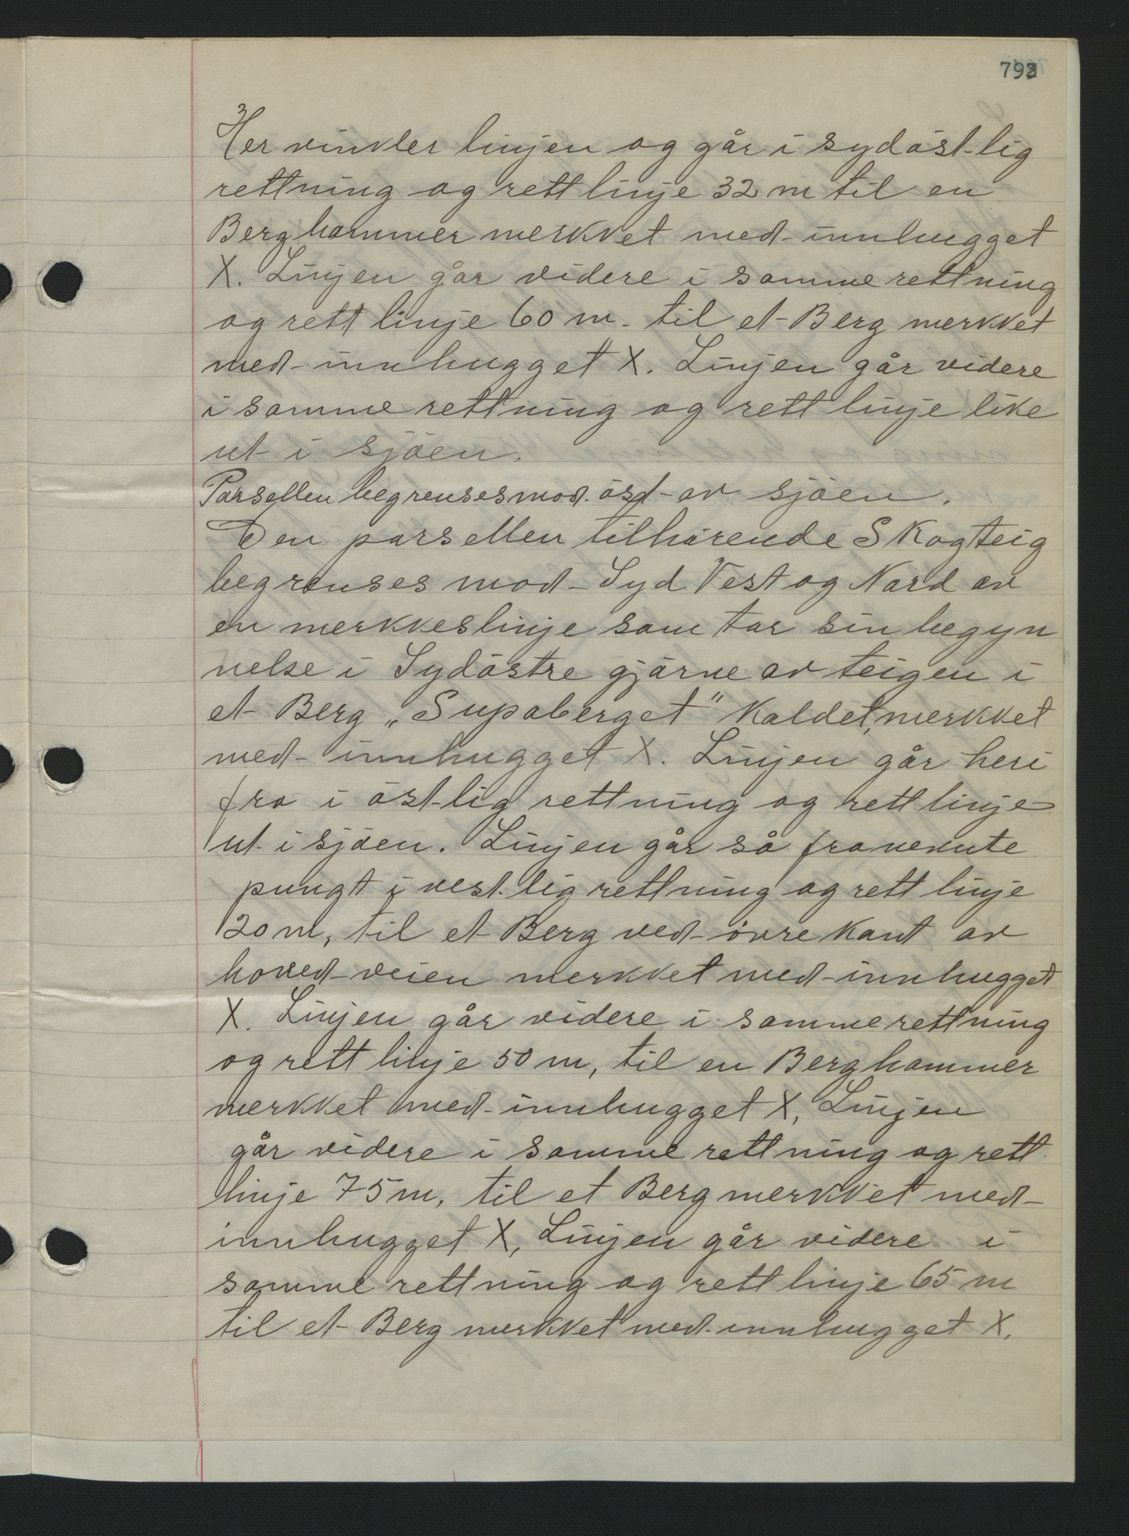 793
Her vinkler linjen og går i sydöst-lig
rettning og rett linje 32 m til en
Berghammer merkket med innhugget
X. Linjen går videre i samme rettning
og rett linje 60 m. til et Berg merkket
med innhugget X. Linjen går videre
i samme rettning og rett linje like
ut i sjöen.
Parsellen begrenses mod öst av sjöen.
Den parsellen tilhörende Skogteig
begrenses mod Syd Vest og Nord av
en merkkeslinje som tar sin begyn
nelse i Sydöstre gjörne av teigen i
et Berg „Supaberget" kaldet, merkket
med innhugget X. Linjen går heri
fra i öst-lig rettning og rett linje
ut i sjöen. Linjen går så fra nevnte
pungt i vest lig rettning og rett linje
20 m, til et Berg ved övre kant av
hoved-veien merkket med innhugget
X. Linjen går videre i samme rettning
og rett linje 50 m, til en Berghammer
merkket med innhugget X, Linjen
går videre i samme rettning og rett
linje 75 m, til et Berg merkket med
innhugget X, Linjen går videre i
samme rettning og rett linje 65 m
til et Berg merkket med innhugget X.